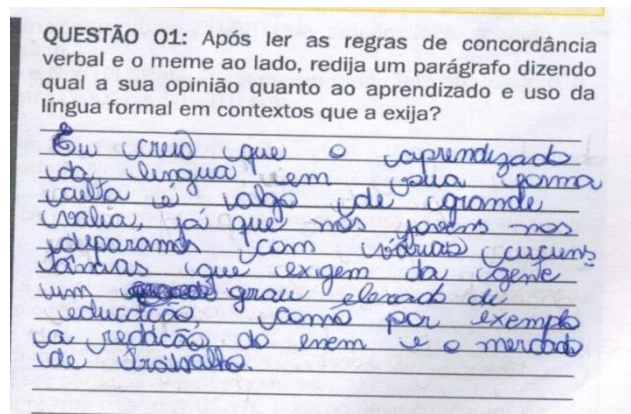 QUESTÃO 01: Após ler as regras de concordância
verbal e o meme ao lado, redija um parágrafo dizendo
qual a sua opinião quanto ao aprendizado e uso da
língua formal em contextos que a exija?
Eu creio que o aprendizado
da lingua em sua forma
culta é algo de grande
valia, já que nós jovens nos
deparamos com várias circuns
tâncias que exigem da gente
um grau elevado de
educação, como por exemplo
a redação do enem e o mercado
de trabalho.